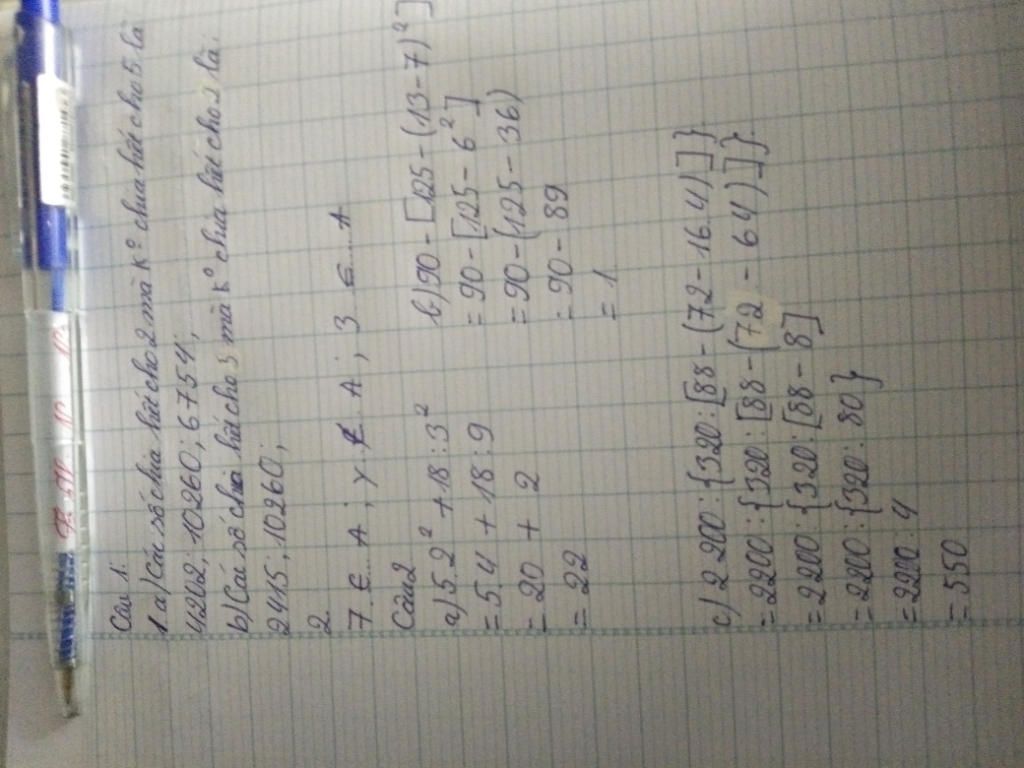 Câu 1.
1. a) Các số chia hết cho 2 mà kº chia hết cho 5 là
4202; 10260; 6754;
b) Các số chia hết cho 3 mà kº chia hết cho 2 là:
2415; 10260;
2.
7 ∈ A; y ∉ A; 3 ∈ A
Câu 2
a) 5.2² + 18:3²
= 5.4 + 18:9
= 20 + 2
= 22
b) 90 - [125 - (13 - 7)²]
= 90 - [125 - 6²]
= 90 - (125 - 36)
= 90 - 89
= 1
c) 2200:{320:[88 - (72 - 16.4)]}
= 2200:{320:[88 - (72 - 64)]}
= 2200:{320:[88 - 8]
= 2200:{320:80}
= 2200:4
= 550